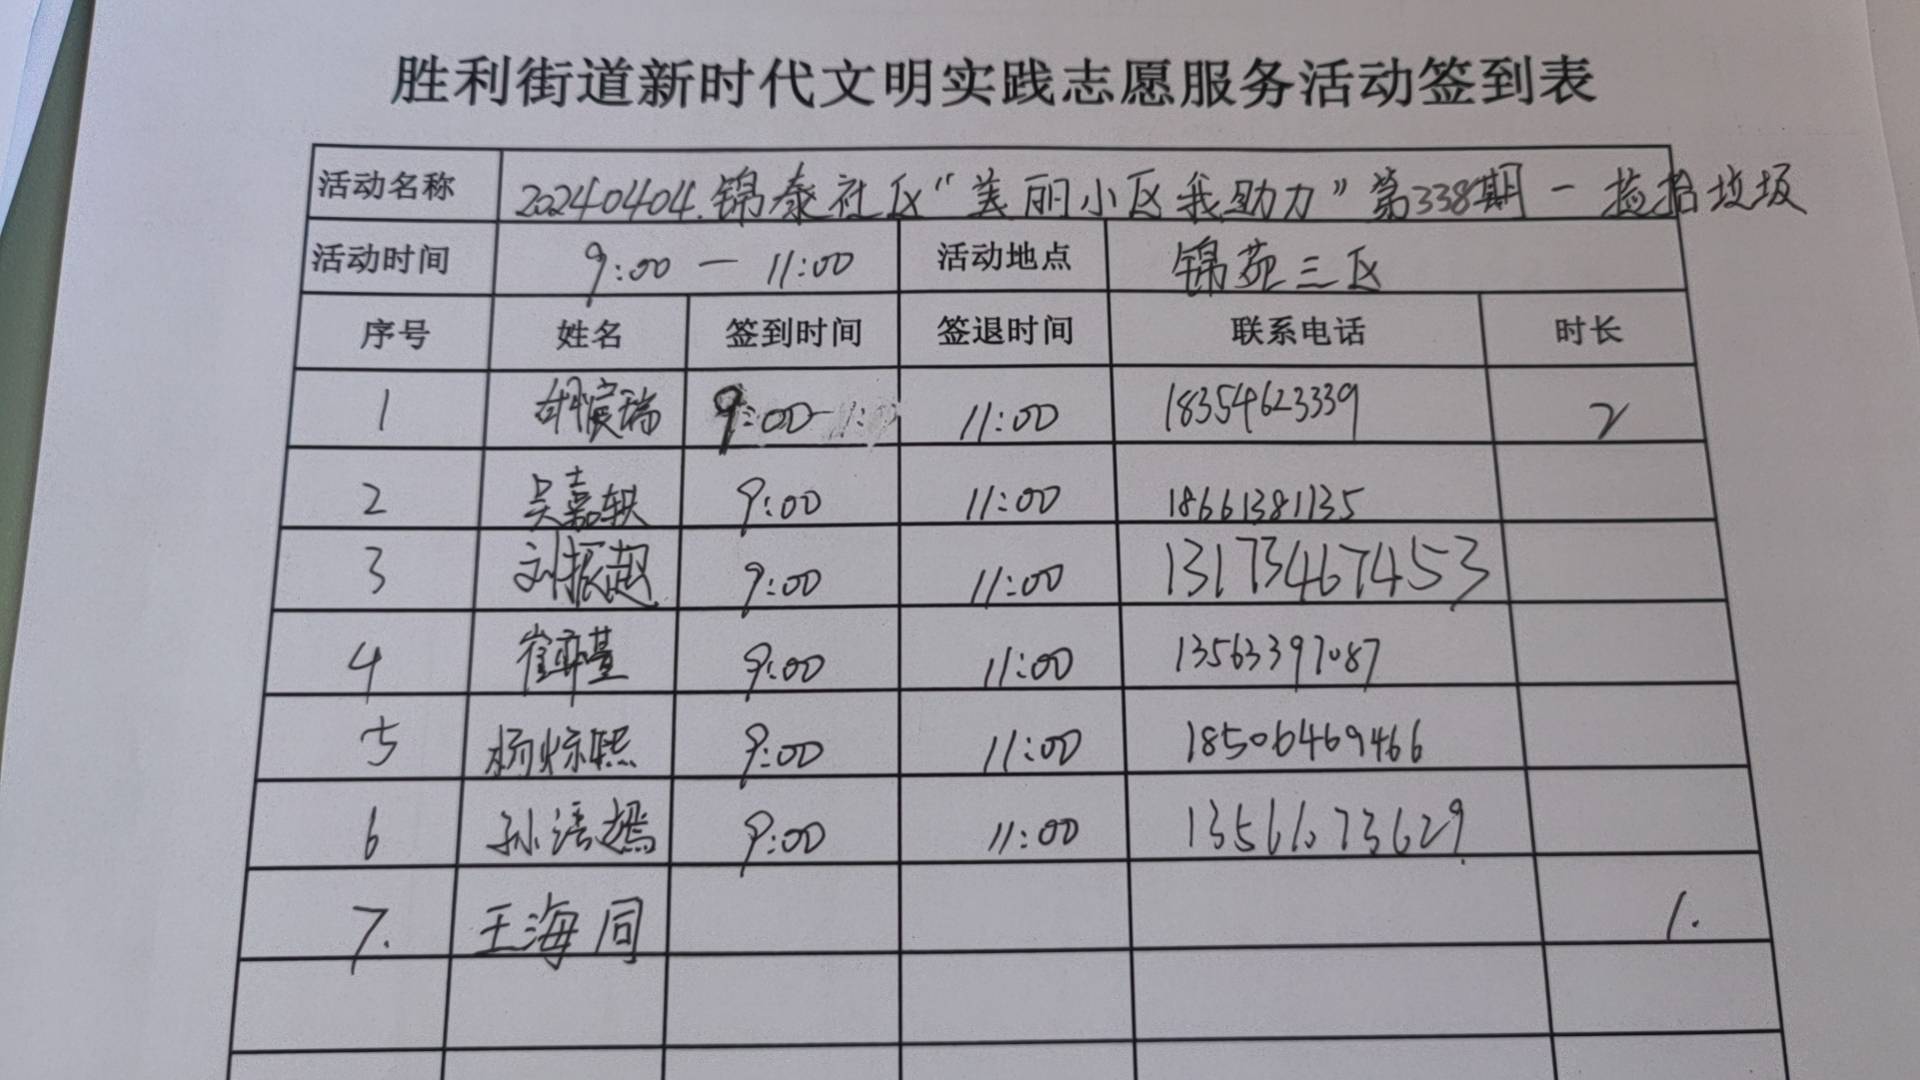 胜利街道新时代文明实践志愿服务活动签到表
活动名称 20240404.锦泰社区“美丽小区我助力”第338期 - 捡拾垃圾
活动时间 9:00 — 11:00 活动地点 锦苑三区
序号 姓名 签到时间 签退时间 联系电话 时长
1 9:00 11:00 18354623339 2
2 吴嘉轶 9:00 11:00 18661381135
3 刘振超 9:00 11:00 13173467453
4 9:00 11:00 13563397087
5 杨惊熙 9:00 11:00 18506469466
6 孙语嫣 9:00 11:00 13561673629
7. 王海同 1.